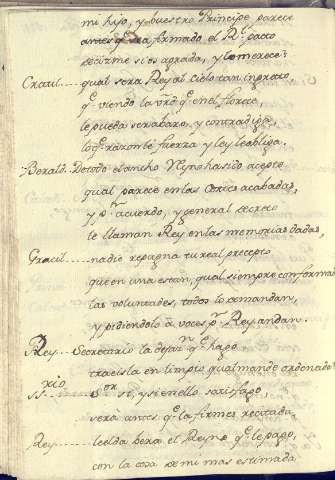 mi hijo, y vuestro Principe parece
antes qe sea firmado el Rl. pacto
decirme si os agrada, y lo merece?
Cracil.....qual sera Rey al cielo tan ingrato
qe. viendo la vrd qe. en el florece,
le pueda ser abaro, y contradiga
lo qe. razon le fuerza y ley le obliga.
Berald. De todo el ancho Reyno ha sido acepto
qual parece en las Cortes acabadas,
y pr. acuerdo, y general decreto
te llaman Rey en las memorias dadas,
Gracil......nadie repugna tu real precepto
que en una estan, qual siempre conformadas
las voluntades, todos lo demandan,
y pidiendolo à voces pr. Rey andan.
Rey....Secretario la dejan. qe. hago
traeisla en limpio qual mande ordenada?
SSrio......Sor si, y si en ello satisfago
será antes qe. la firmes recitada,
Rey.......leelda bera el Reyno qe. le pago,
con la cosa de mi mas estimada